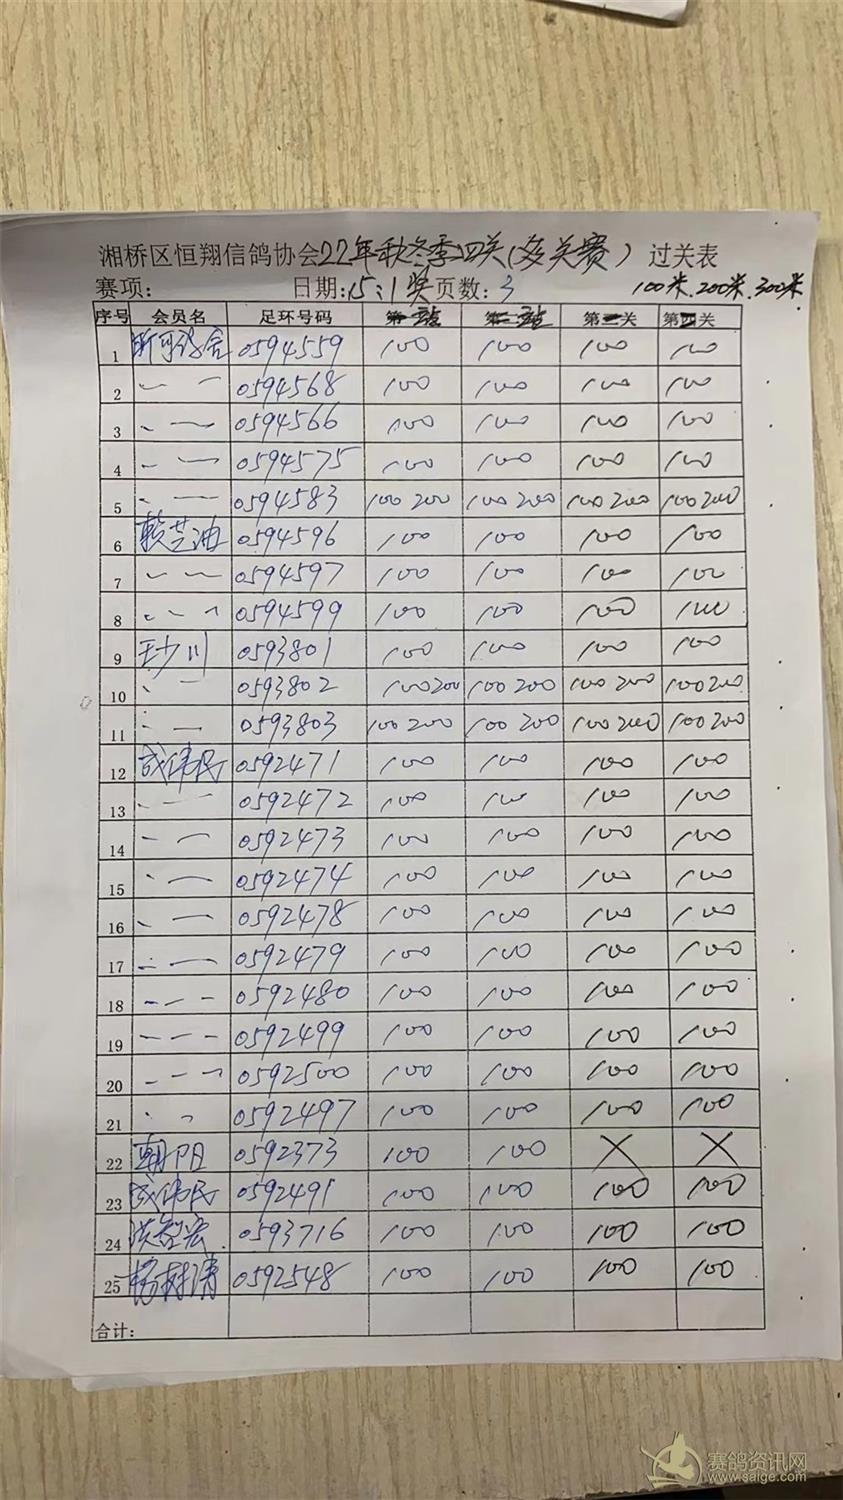 湘桥区恒翔信鸽协会22年秋冬季四关(多关赛) 过关表
赛项: 日期:15:1奖 页数:3 100米.200米.300米
序号 会员名 足环号码 第一 第二 第三关 第四关
1 0594559 100 100 100 100
2 〃 0594568 100 100 100 100
3 〃 0594566 100 100 100 100
4 〃 0594575 100 100 100 100
5 〃 0594583 100 200 100 200 100 200 100 200
6 赖芝油 0594596 100 100 100 100
7 〃 0594597 100 100 100 100
8 〃 0594599 100 100 100 100
9 王少川 0593801 100 100 100 100
10 〃 0593802 100 200 100 200 100 200 100 200
11 〃 0593803 100 200 100 200 100 200 100 200
12 成伟民 0592471 100 100 100 100
13 〃 0592472 100 100 100 100
14 〃 0592473 100 100 100 100
15 〃 0592474 100 100 100 100
16 〃 0592478 100 100 100 100
17 〃 0592479 100 100 100 100
18 〃 0592480 100 100 100 100
19 〃 0592499 100 100 100 100
20 〃 0592500 100 100 100 100
21 〃 0592497 100 100 100 100
22 朝阳 0592373 100 100 X X
23 成伟民 0592491 100 100 100 100
24 洪智宏 0593716 100 100 100 100
25 杨树涛 0592548 100 100 100 100
合计:
赛鸽资讯网
www.saige.com